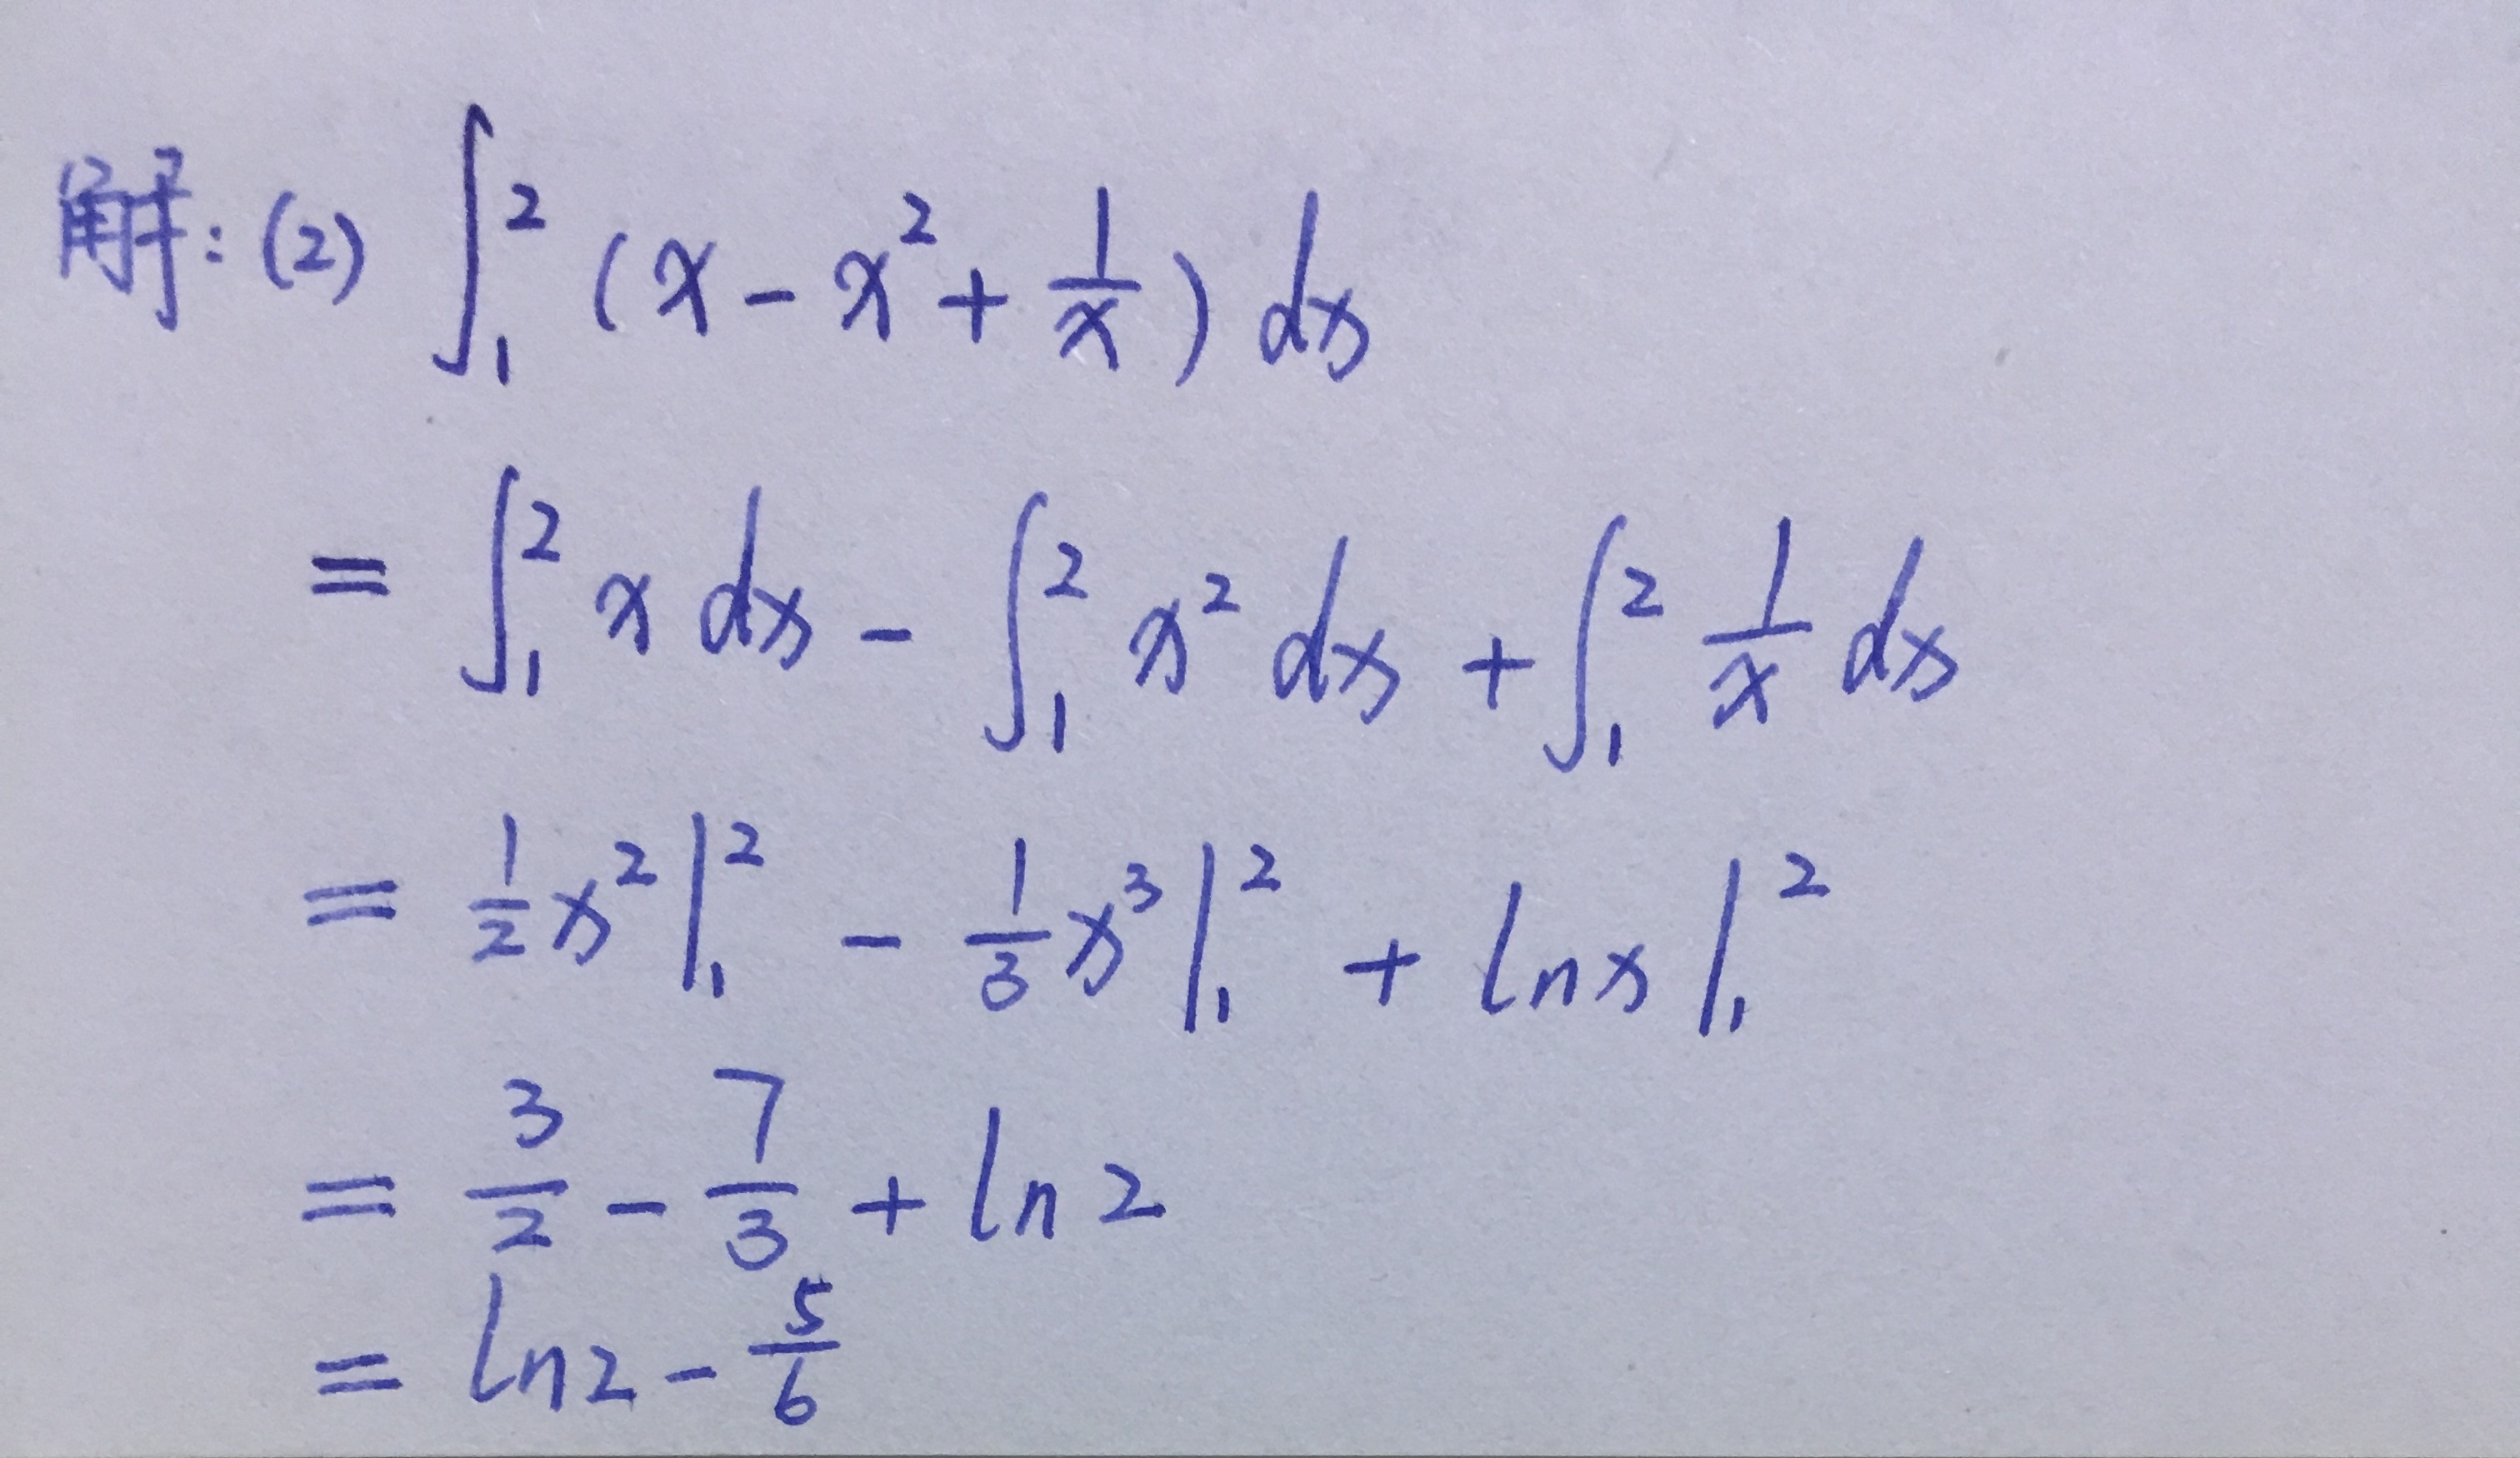 解: (2) ∫₁² (x - x² + 1/x) dx
= ∫₁² x dx - ∫₁² x² dx + ∫₁² 1/x dx
= 1/2 x² |₁² - 1/3 x³ |₁² + ln x |₁²
= 3/2 - 7/3 + ln 2
= ln 2 - 5/6